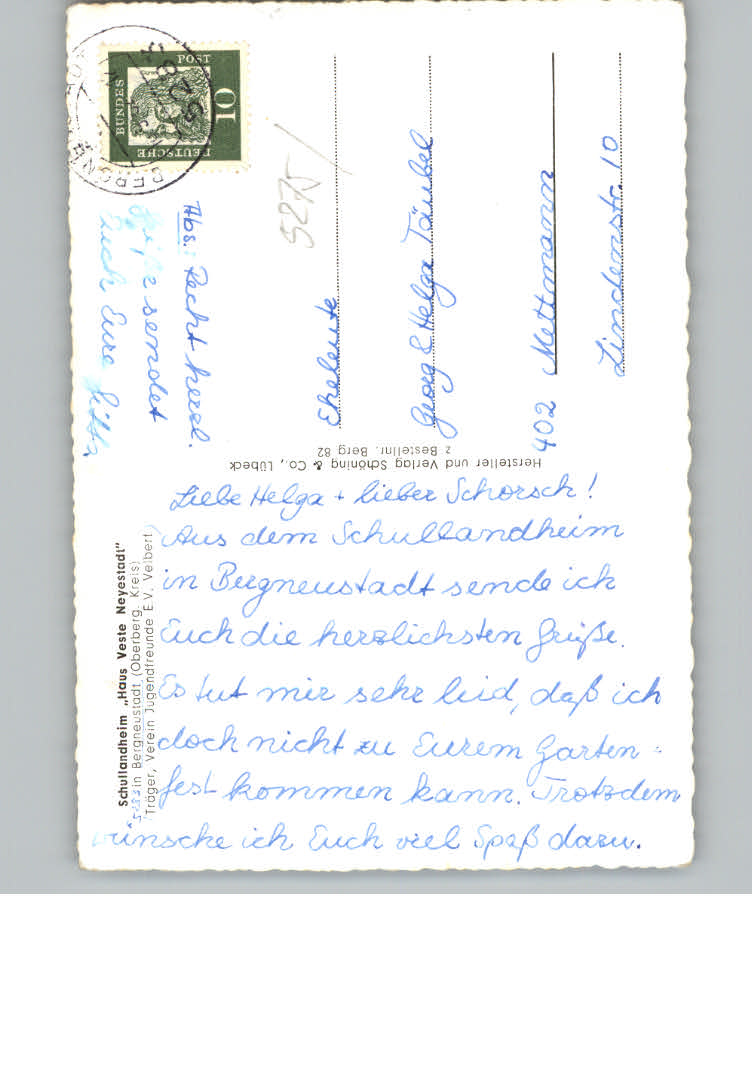 Schullandheim „Haus Veste Neyestadt"
5275 in Bergneustadt (Oberberg. Kreis)
(Träger, Verein Jugendfreunde E.V. Velbert)
Liebe Helga + lieber Schorsch!
Aus dem Schullandheim
in Bergneustadt sende ich
Euch die herzlichsten Grüße.
Es tut mir sehr leid, daß ich
doch nicht zu Eurem Garten-
fest kommen kann. Trotzdem
wünsche ich Euch viel Spaß dazu.
Abs.: Recht herzl.
Grüße sendet
Euch Eure
Hersteller und Verlag Schöning & Co., Lübeck
z Bestellnr. Berg 82
DEUTSCHE
BUNDES
POST
10
5275
Eheleute
Georg & Helga Täubel
402 Mettmann
Lindenstr. 10